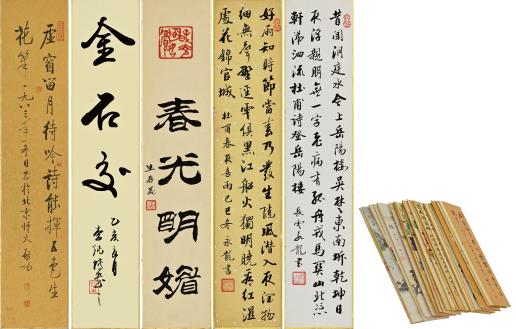 昔聞洞庭水今上岳陽樓吴楚東南坼乾坤日
夜浮親朋無一字老病有孤舟戎馬關山北憑
軒涕泗流杜甫詩登岳陽樓
龍書
好雨知時節當春乃發生隨風潛入夜潤物
細無聲野徑雲俱黑江船火獨明曉看紅濕
處花錦官城
杜甫春夜喜雨己巳冬永龍書
春光明媚
金石交
乙亥
虚窗留月待吟詩能揮五色生
花筆一九八三年一月於北京師大啟功